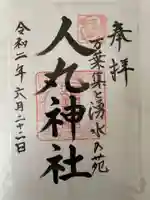 奉拝
万葉集と湧水の苑
人丸神社
令和二年六月二十二日